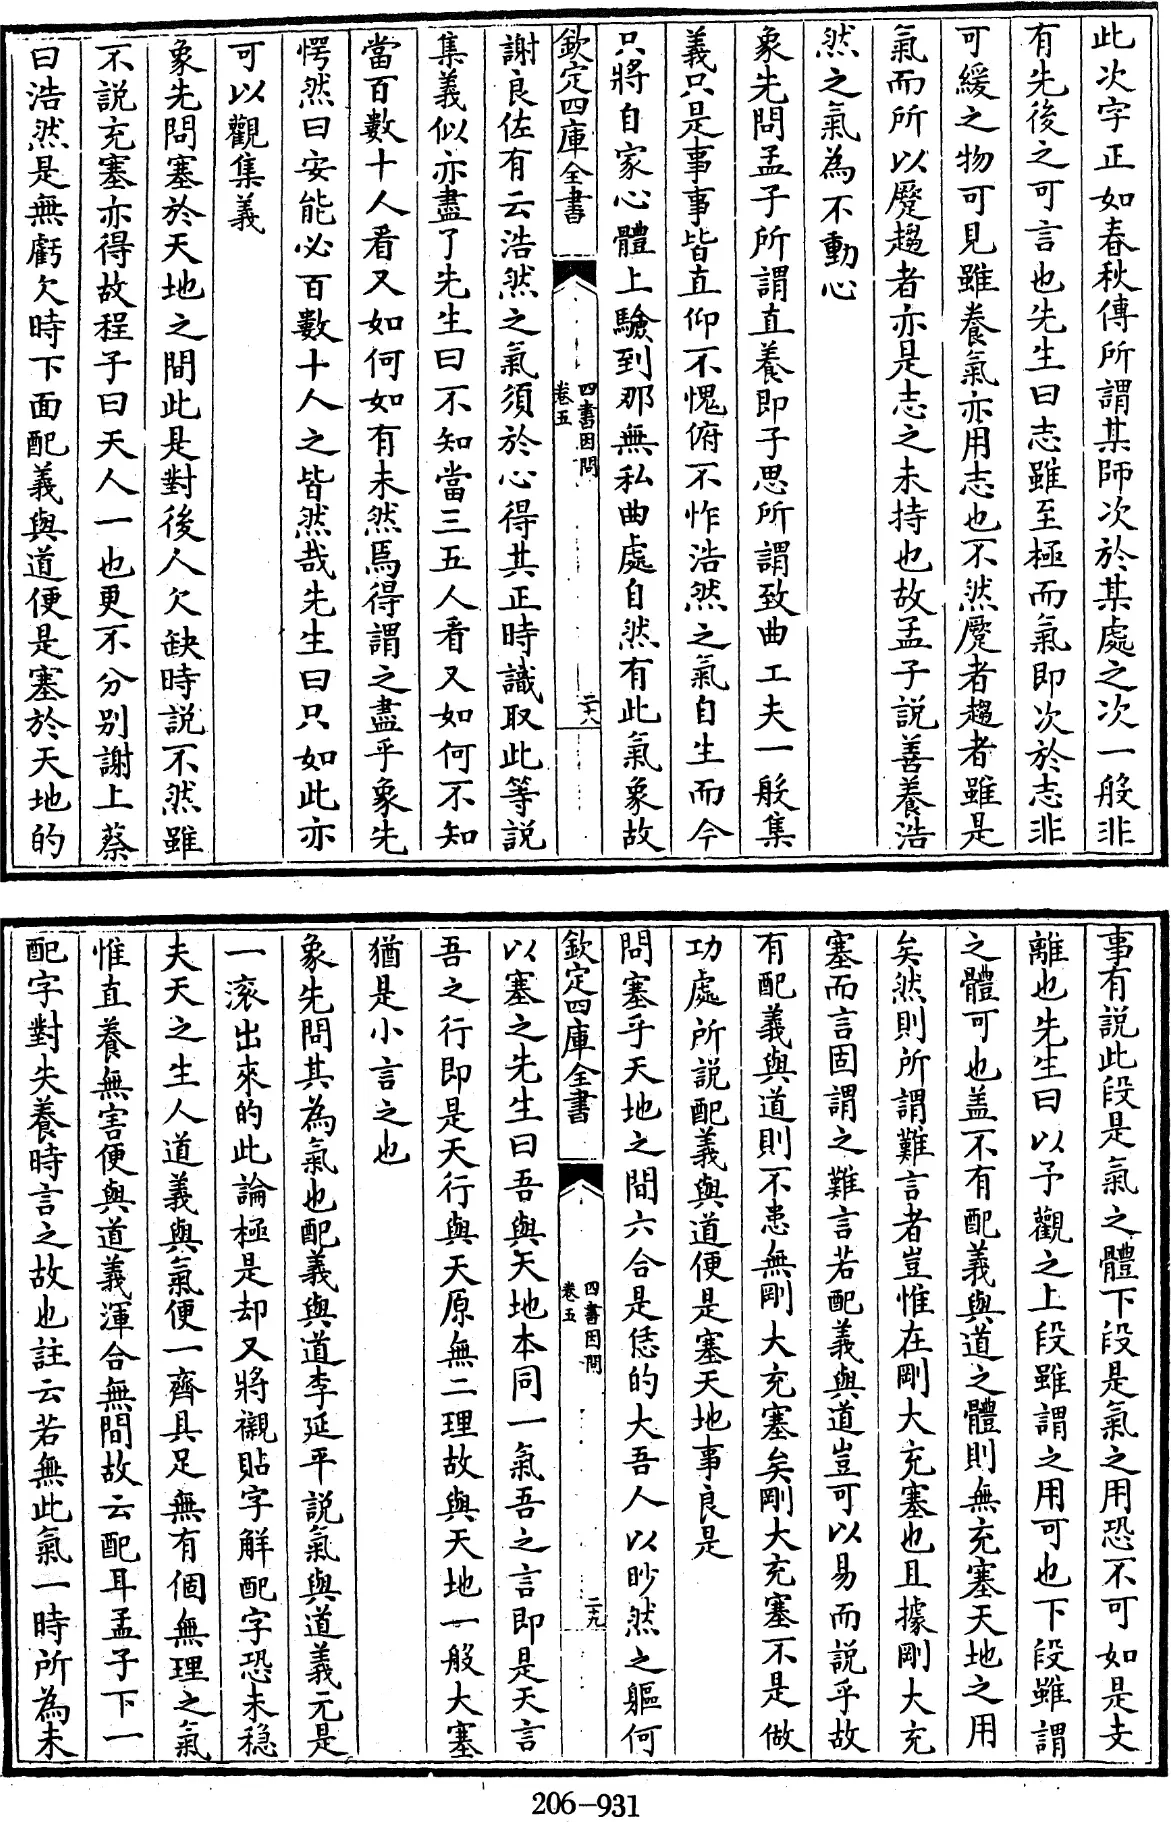 此次字正如春秋傳所謂某師次於某處之次一般非
有先後之可言也先生曰志雖至極而氣即次於志非
可緩之物可見雖養氣亦用志也不然蹷者趨者雖是
氣而所以蹷趨者亦是志之未持也故孟子説善養浩
然之氣為不動心
象先問孟子所謂直養即子思所謂致曲工夫一般集
義只是事事皆直仰不愧俯不怍浩然之氣自生而今
只將自家心體上驗到那無私曲處自然有此氣象故
欽定四庫全書
四書因問
卷五
二十八
謝良佐有云浩然之氣須於心得其正時識取此等説
集義似亦盡了先生曰不知當三五人看又如何不知
當百數十人看又如何如有未然焉得謂之盡乎象先
愕然曰安能必百數十人之皆然哉先生曰只如此亦
可以觀集義
象先問塞於天地之間此是對後人欠缺時説不然雖
不説充塞亦得故程子曰天人一也更不分别謝上蔡
曰浩然是無虧欠時下面配義與道便是塞於天地的
事有説此段是氣之體下段是氣之用恐不可如是支
離也先生曰以予觀之上段雖謂之用可也下段雖謂
之體可也盖不有配義與道之體則無充塞天地之用
矣然則所謂難言者豈惟在剛大充塞也且據剛大充
塞而言固謂之難言若配義與道豈可以易而説乎故
有配義與道則不患無剛大充塞矣剛大充塞不是做
功處所説配義與道便是塞天地事良是
問塞乎天地之間六合是恁的大吾人以眇然之軀何
欽定四庫全書
四書因問
卷五
二十九
以塞之先生曰吾與天地本同一氣吾之言即是天言
吾之行即是天行與天原無二理故與天地一般大塞
猶是小言之也
象先問其為氣也配義與道李延平説氣與道義元是
一滚出來的此論極是却又將襯貼字解配字恐未穏
夫天之生人道義與氣便一齊具足無有個無理之氣
惟直養無害便與道義渾合無間故云配耳孟子下一
配字對失養時言之故也註云若無此氣一時所為未
206-931